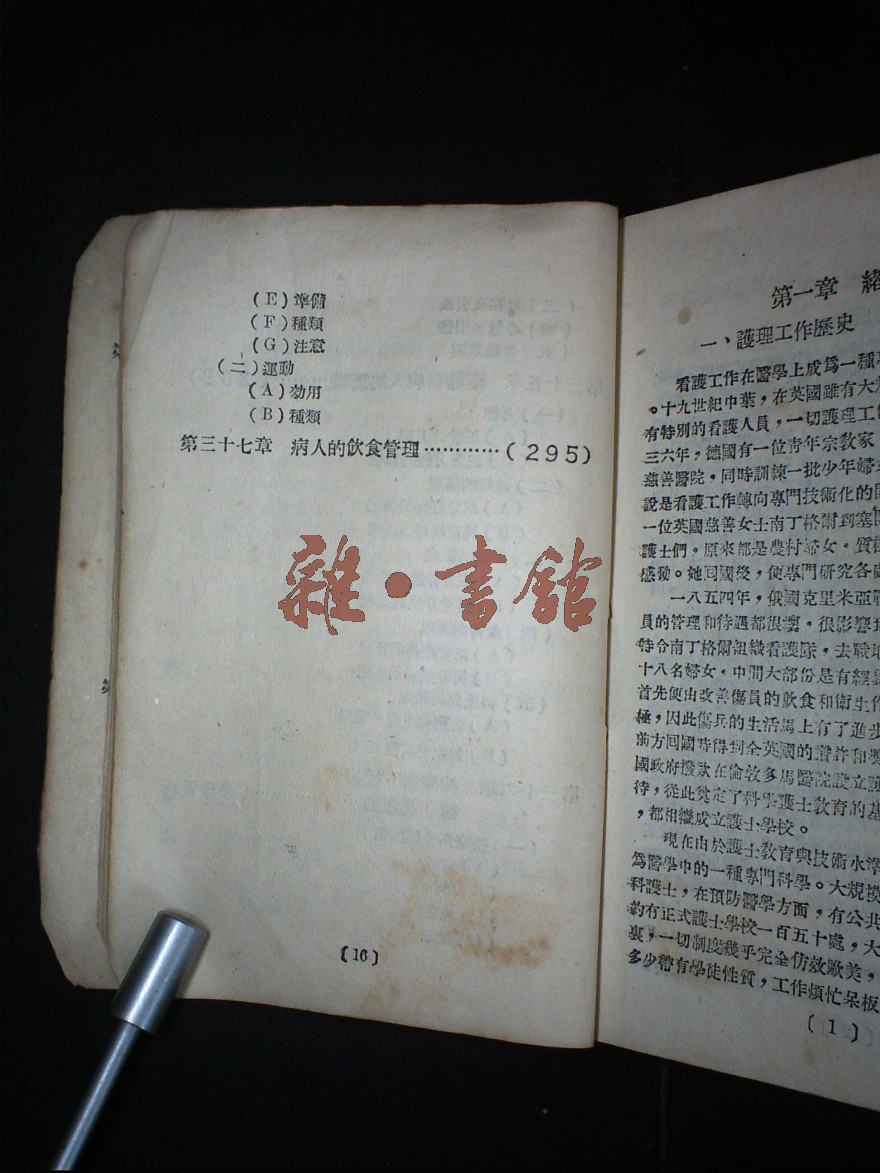 (E)準備
(F)種類
(G)注意
(二)運動
(A)効用
(B)種類
第三十七章 病人的飲食管理…………(295)
雜·書館
〔16〕
第一章 緒
一、護理工作歷史
看護工作在醫學上成爲一種專
。十九世紀中葉,在英國雖有大
有特別的看護人員,一切護理工
三六年,德國有一位靑年宗敎家
慈善醫院,同時訓練一批少年婦
說是看護工作轉向專門技術化的開
一位英國慈善女士南丁格爾到塞
護士們,原來都是農村婦女,質樸
感動。她回國後,便專門硏究各處
一八五四年,俄國克里米亞戰
員的管理和待遇都很壞,很影響
特令南丁格爾組織看護隊,去戰地
十八名婦女,中間大部份是有經
首先便由改善傷員的飲食和衛生作
極,因此傷兵的生活馬上有了進步
前方回國時得到全英國的讚許和獎
國政府撥款在倫敦多馬醫院設立護
待,從此奠定了科學護士敎育的基
,都相繼成立護士學校。
現在由於護士敎育與技術水準
爲醫學中的一種專門科學。大規模
科護士,在預防醫學方面,有公共
約有正式護士學校一百五十處,大
裏,一切制度幾乎完全仿效歐美,
多少帶有學徒性質,工作煩忙呆板
〔1〕